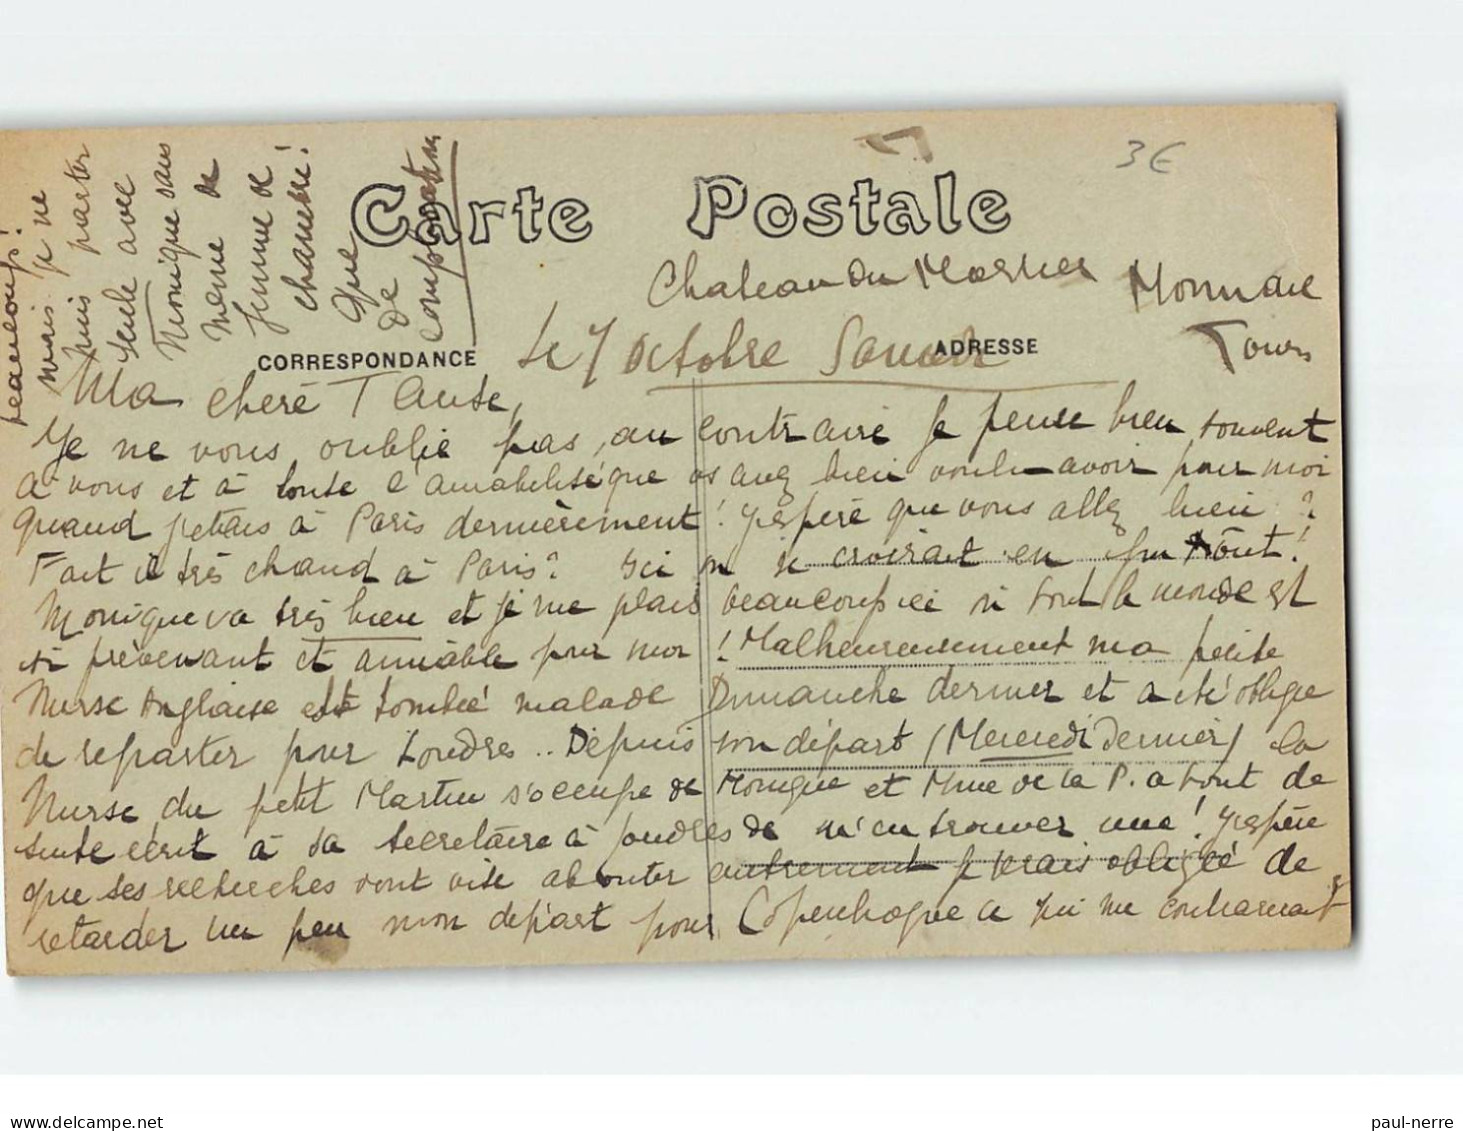 3€
Carte Postale
Chateau du Mortier Monnaie
Tours
CORRESPONDANCE
ADRESSE
Le 7 Octobre Samedi
Ma chère Tante,
Je ne vous oublie pas, au contraire je pense bien souvent
à vous et à toute l'amabilité que vs avez bien voulu avoir pour moi
quand j'étais à Paris dernièrement! J'espère que vous allez bien?
Fait il très chaud à Paris? Ici on se croirait en plein Août!
Monique va très bien et je me plais beaucoup ici si tout le monde est
si prévenant et aimable pour moi! Malheureusement ma petite
Nurse Anglaise est tombée malade Dimanche dernier et a été obligée
de repartir pour Londres.. Depuis son départ (Mercredi dernier) la
Nurse du petit Martin s'occupe de Monique et Mme de la P. a tout de
suite écrit à sa secrétaire à Londres de m'en trouver une! J'espère
que ses recherches vont vite aboutir autrement je serais obligée de
retarder un peu mon départ pour Copenhague ce qui me contrarierait
beaucoup!
mais je ne
puis partir
seule avec
Monique sans
même de
femme de
chambre!
Que
de
complications
paul-nerre